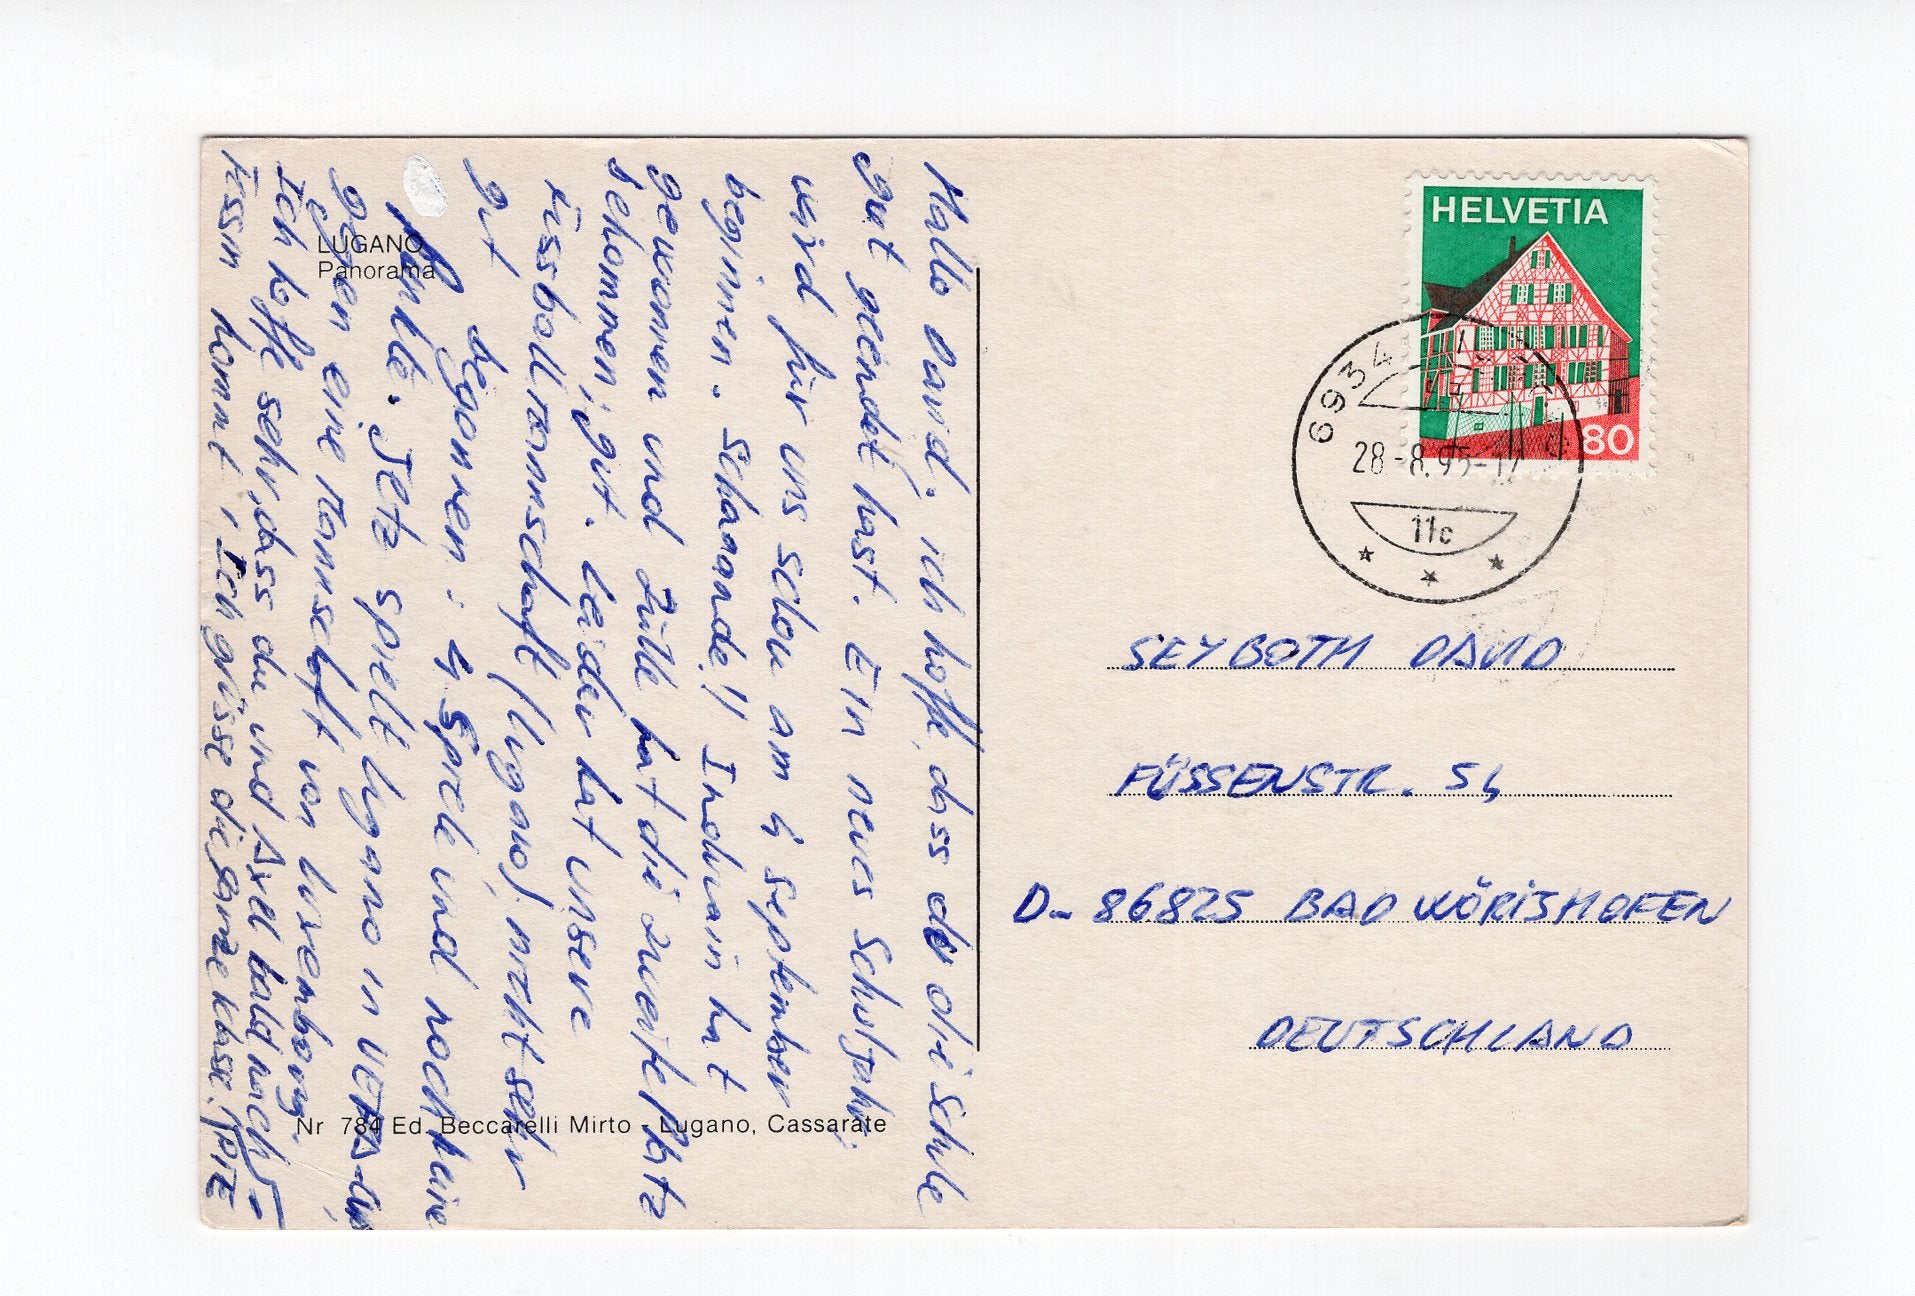 Hallo David, ich hoffe, dass du die Schule
gut geendet hast. Ein neues Schuljahr
wird für uns schon am 4 September
beginnen. Schaaande!! Indurain hat
gewonnen und Zülle hat die zweite Platz
genommen; gut. Leider hat unsere
Fussballmannschaft (Lugano) nicht sehr
gut
begonnen: 4 Spiele und noch keine
Punkte. Jetz spielt Lugano in UEFA-Cup
gegen eine Mannschaft von Luxemborg.
Ich hoffe sehr dass du und Axel bald nach
Tessin kommt; Ich grüsse die ganze Klasse.
LUGANO
Panorama
Nr 784 Ed. Beccarelli Mirto - Lugano, Cassarate
HELVETIA
80
6934
28 -8.95-17
11c
SEYBOTH DAVID
FÜSSENSTR. 54
D- 86825 BAD WÖRISHOFEN
DEUTSCHLAND